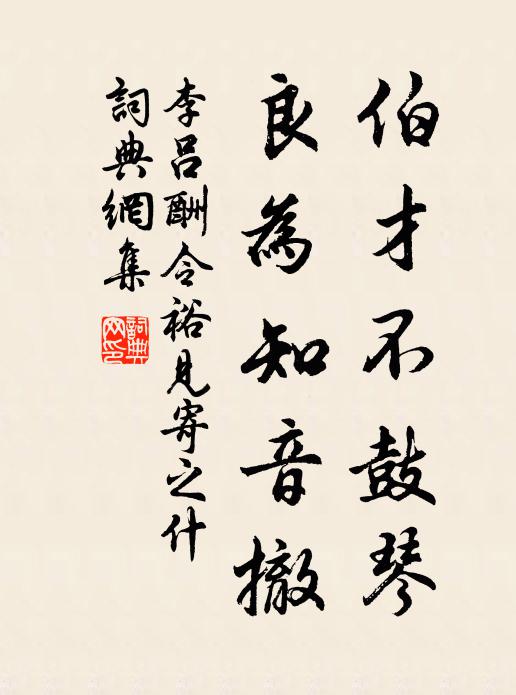 伯才不鼓琴
良為知音撤
李呂酬令裕見寄之什
詞典網集
詞典網印